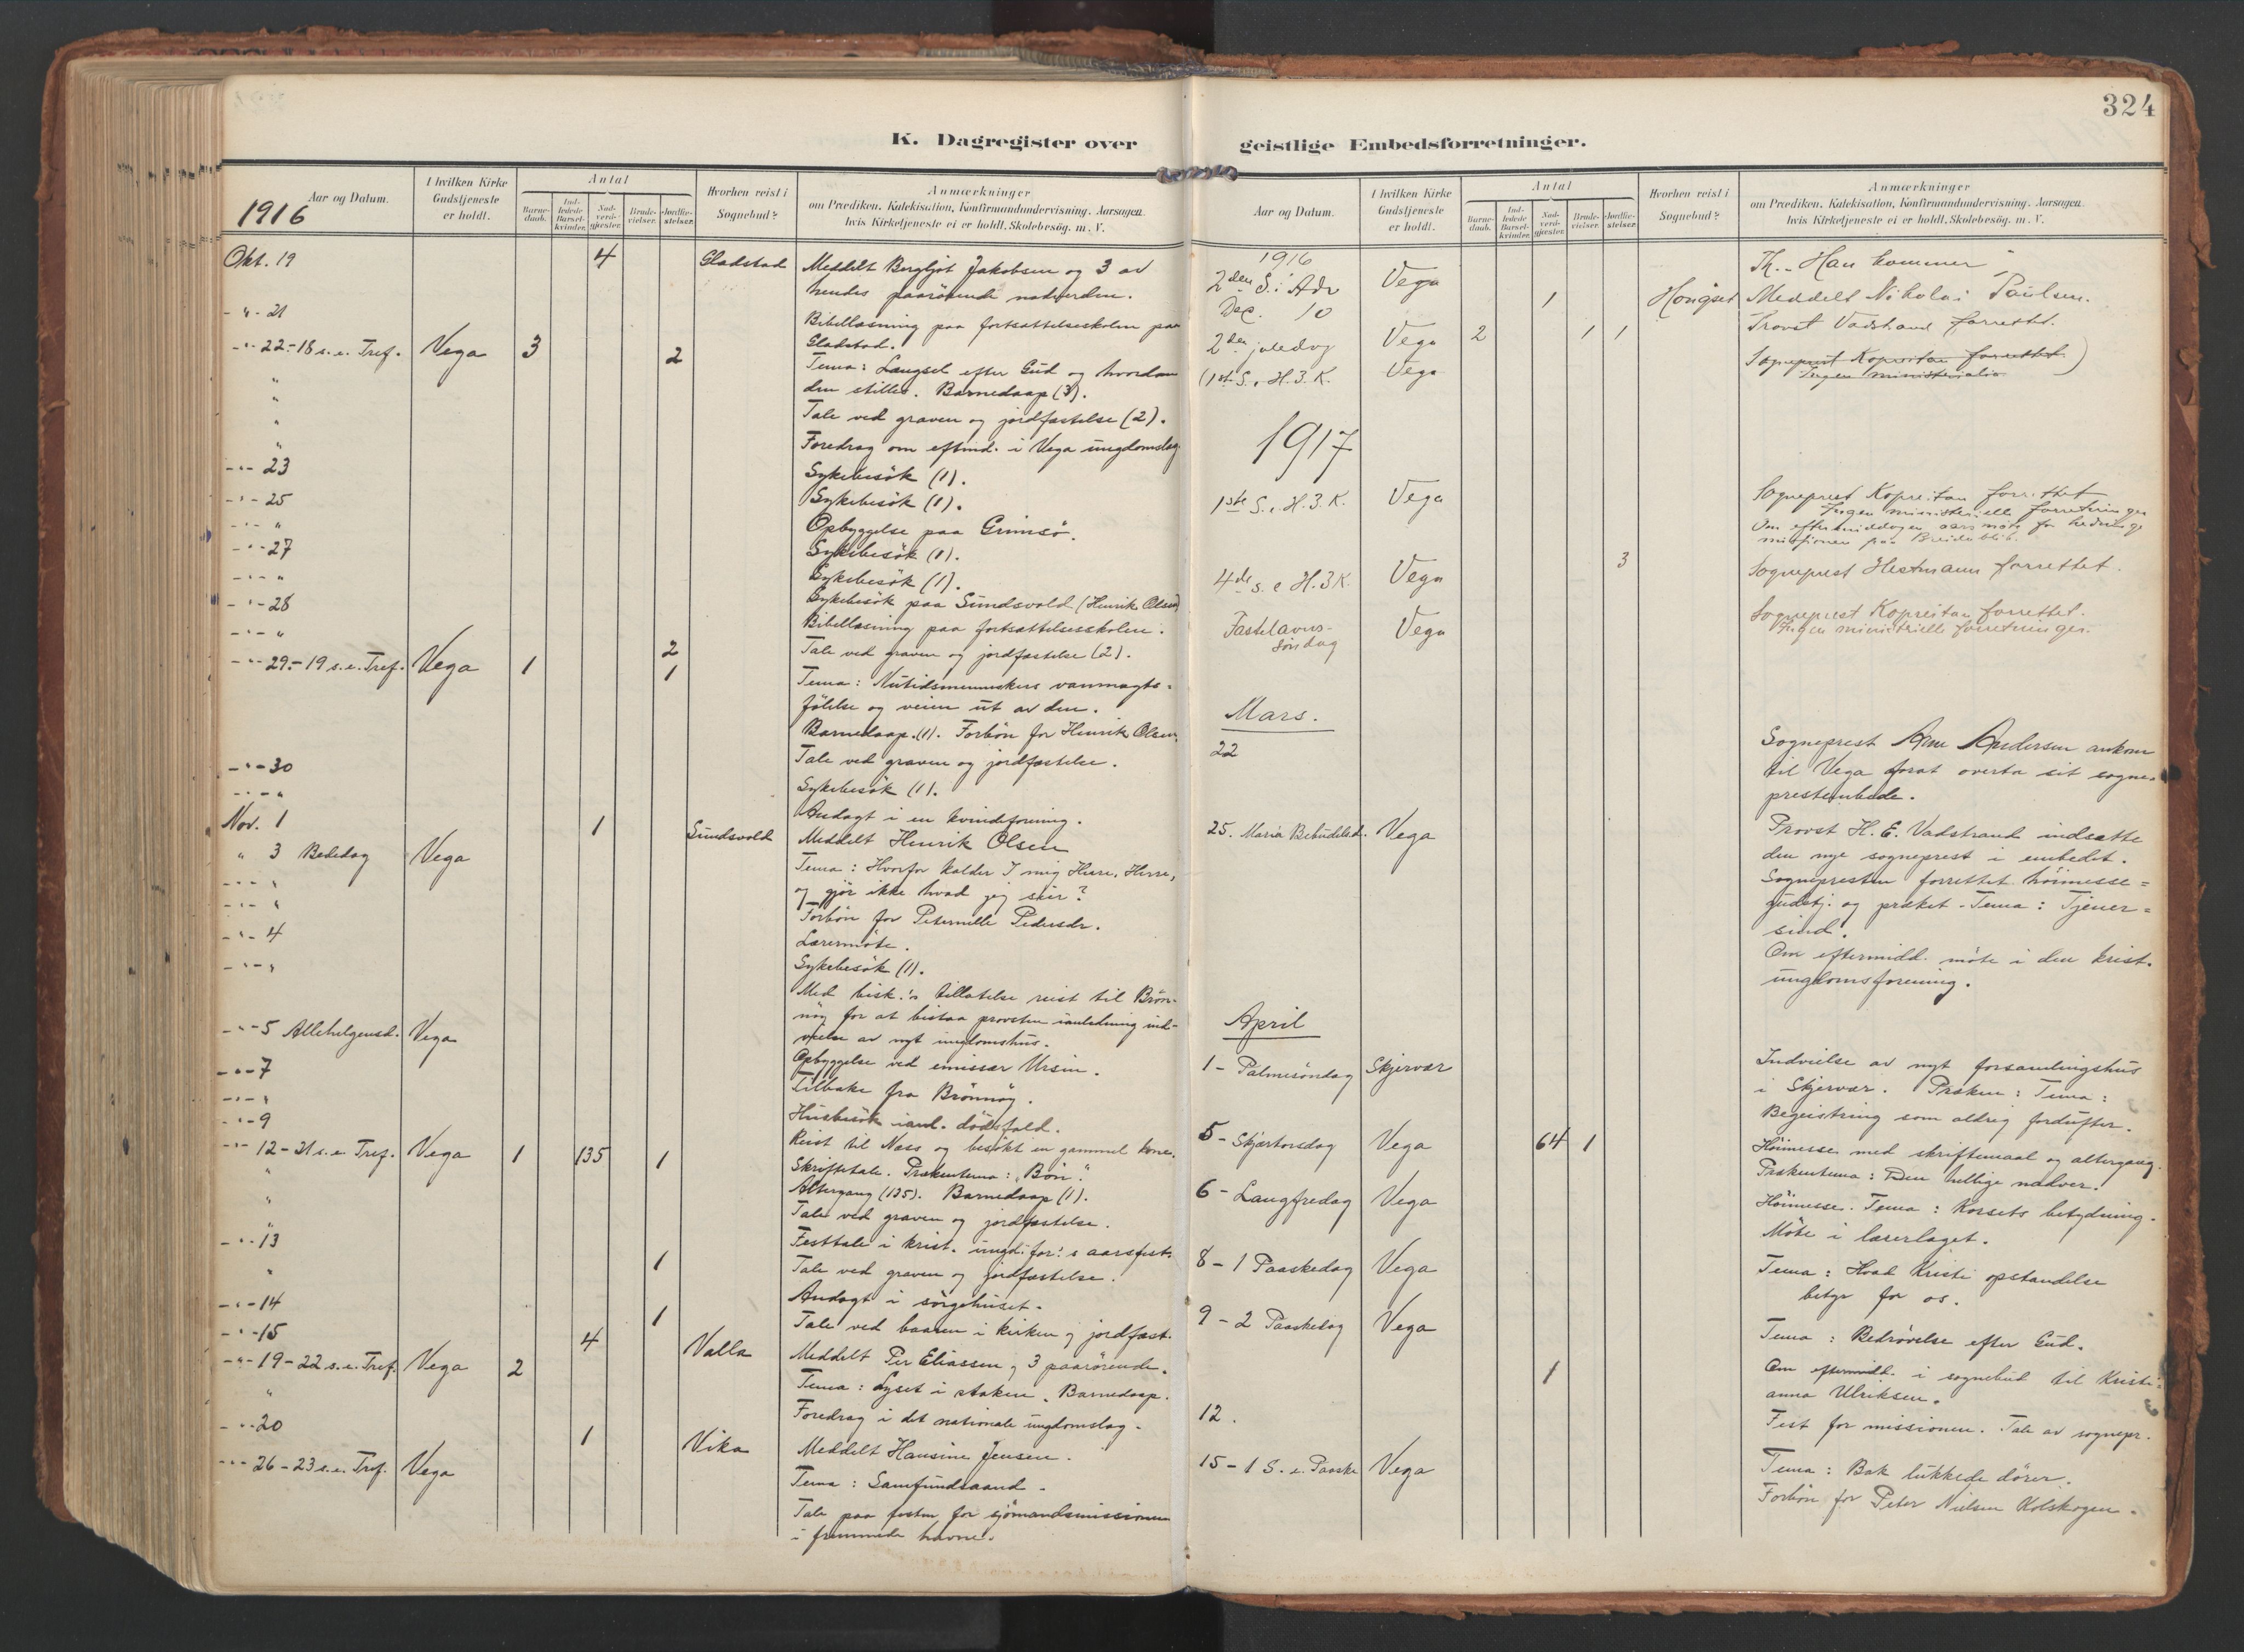 324
K. Dagregister over geistlige Embedsforretninger.
Aar og Datum.
I hvilken Kirke Gudstjeneste er holdt.
Antal
Barne-daab.
Ind-ledede Barsel-kvinder.
Nad-verd-gjæster.
Brude-vielser.
Jordfæ-stelser.
Hvorhen reist i Sognebud?
Anmærkninger
om Prædiken, Katekisation, Konfirmandundervisning. Aarsagen,
hvis Kirketjeneste ei er holdt, Skolebesøg, m. V.
1916
Okt. 19 4 Gladstad Meddelt Bergljot Jakobsen og 3 av
hendes paarørende nadverden.
- " - 21 Bibellæsning paa fortsættelsesskolen paa
Gladstad.
- " - 22 - 18 s. e. Tref. Vega 3 2 Tema: Længsel efter Gud og hvordan
den stilles. Barnedaap (3).
" Tale ved graven og jordfæstelse (2).
" Foredrag om eftmd. i Vega ungdomslag.
- " - 23 Sykebesök (1).
- " - 25 Sykebesök (1).
- " - " Opbyggelse paa Grimsö.
- " - 27 Sykebesök (1).
- " - " Sykebesök (1).
- " - 28 Sykebesök paa Sundsvold (Henrik Olsen)
- " - " Bibellæsning paa fortsættelsesskolen.
2 Tale ved graven og jordfæstelse (2).
- " - 29 - 19 s. e. Tref. Vega 1 1 Tema: Nutidsmenneskers vanmagts-
følelse og veien ut av den.
Barnedaap (1). Forbön for Henrik Olsen.
Tale ved graven og jordfæstelse.
- " - 30 Sykebesök (1).
- " - " Andagt i en kvindeforening.
Nov. 1 1 Sundsvold Meddelt Henrik Olsen
" 3 Bededag Vega Tema: Hvorfor kalder I mig Herre, Herre,
og gjör ikke hvad jeg sier?
Forbön for Peternille Pedersdr.
- " - " Lærermöte.
- " - 4 Sykebesök (1).
- " - " Med bisk.'s tillatelse reist til Brön-
nöy for at bistaa provsten i anledning ind-
vielse av nyt ungdomshus.
- " - 5 Allehelgensd. Vega Opbyggelse ved emissær Ursin.
- " - 7 Tilbake fra Brönnöy.
- " - " Husbesök i anl. dödsfald.
- " - 9 Reist til Næs og besökt en gammel kone.
- " - 12 - 21 s. e. Tref. Vega 1 135 1 Skriftetale. Prækentema: "Bön".
Altergang (135). Barnedaap (1).
" Tale ved graven og jordfæstelse.
" Festtale i krist. ungd. for.'s aarsfest.
- " - 13 1 Tale ved graven og jordfæstelse.
" Andagt i sörgehuset.
- " - 14 1 Tale ved baaren i kirken og jordfæst.
- " - 15 4 Valla Meddelt Per Eliassen og 3 paarörende.
- " - 19 - 22 s. e. Tref. Vega 2 Tema: Lyset i staken. Barnedaap.
" Foredrag i det nationale ungdomslag.
- " - 20 1 Vika Meddelt Hansine Jensen.
- " - 26 - 23 s. e. Tref. Vega Tema: Samfundsaand.
Tale paa festen for sjömandsmissionen
i fremmede havne.
Aar og Datum.
I hvilken Kirke Gudstjeneste er holdt.
Antal
Barne-daab.
Ind-ledede Barsel-kvinder.
Nad-verd-gjæster.
Brude-vielser.
Jordfæ-stelser.
Hvorhen reist i Sognebud?
Anmærkninger
om Prædiken, Katekisation, Konfirmandundervisning. Aarsagen,
hvis Kirketjeneste ei er holdt, Skolebesög, m. V.
1916
2den S. i Adv Vega Th. "Han kommer"
Dec. 10 1 Meddelt Nikolai Paulsen.
2den juledag Vega 2 1 1 Provst Vadstrand forrettet.
(1ste S. e. H. 3. K. Vega Sogneprest Kopreitan forrettet.)
Ingen ministerialia
1917
1ste S. e. H. 3. K. Vega Sogneprest Kopreitan forrettet
Ingen ministerielle forretninger
Om eftermiddagen aarsmöte for hedninge
missionen paa Breidablik.
4de S. e H. 3 K. Vega 3 Sogneprest Hestmann forrettet.
Fastelavns-
söndag Vega Sogneprest Kopreitan forrettet.
Ingen ministerielle forretninger.
Mars.
22 Sogneprest Arne Andersen ankom
til Vega forat overta sit sogne-
prestembede.
25. Maria Bebudelsd. Vega Provst H. E. Vadstrand indsatte
den nye sogneprest i embedet.
Sognepresten forrettet höimesse-
gudstj. og præket. Tema: Tjener-
sind.
Om eftermidd. möte i den krist.
ungdomsforening.
April
1 - Palmesöndag Skjervær Indvielse av nyt forsamlingshus
i Skjervær. Præken: Tema:
Begeistring som aldrig fordufter.
5 - Skjærtorsdag Vega 64 1 Höimesse med skriftemaal og altergang.
Prækentema: Den hellige nadver.
6 - Langfredag Vega Höimesse. Tema: Korsets betydning.
Möte i lærerlaget.
8 - 1 Paaskedag Vega Tema: Hvad Kristi opstandelse
betyr for os.
9 - 2 Paaskedag Vega Tema: Bedrövelse efter Gud.
1 Om eftermidd. i sognebud til Kristi-
anna Ulriksen.
12. Fest for missionen. Tale av sognepr.
15 - 1 S. e. Paaske Vega Tema: Bak lukkede dörer.
Forbön for Peter Nielsen Kolskogen.